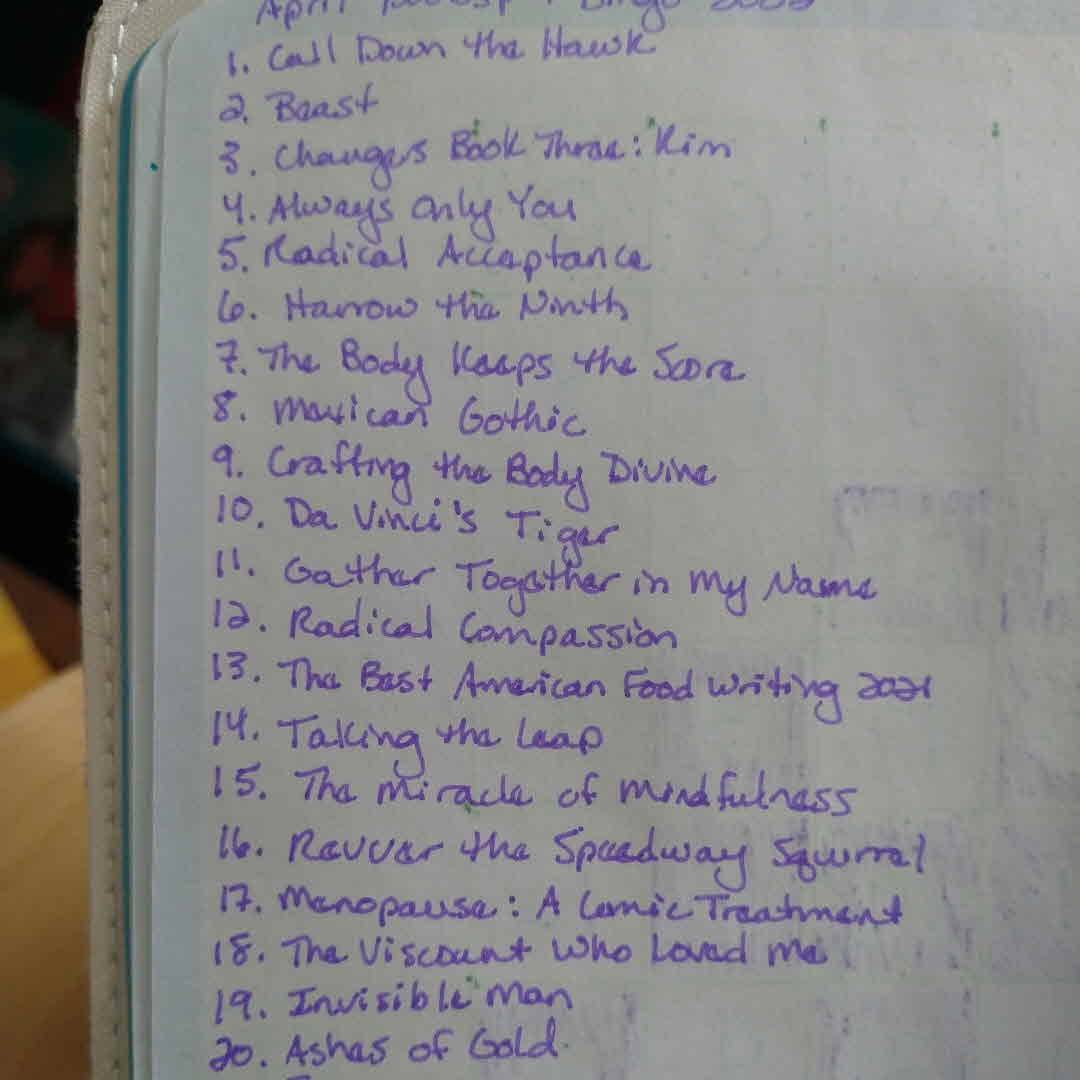 April
1. Call Down the Hawk
2. Beast
3. Changers Book Three: Kim
4. Always Only You
5. Radical Acceptance
6. Harrow the Ninth
7. The Body Keeps the Score
8. Mexican Gothic
9. Crafting the Body Divine
10. Da Vinci's Tiger
11. Gather Together in My Name
12. Radical Compassion
13. The Best American Food Writing 2021
14. Taking the Leap
15. The Miracle of Mindfulness
16. Revver the Speedway Squirrel
17. Menopause: A Comic Treatment
18. The Viscount Who Loved Me
19. Invisible Man
20. Ashes of Gold